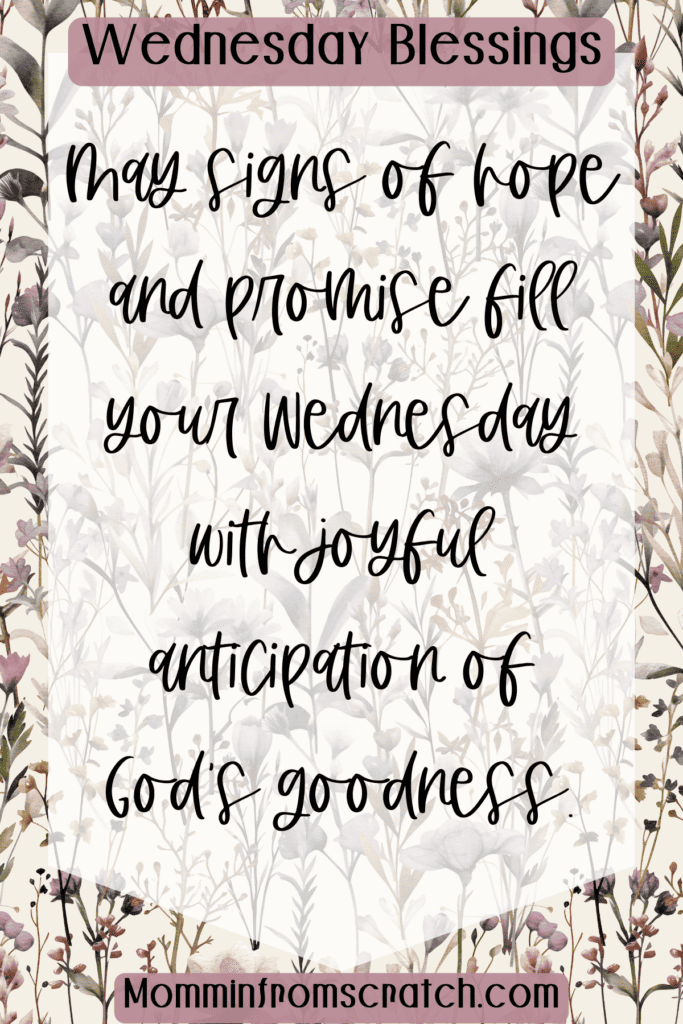 Wednesday Blessings
May signs of hope
and promise fill
your Wednesday
with joyful
anticipation of
God's goodness.
Momminfromscratch.com